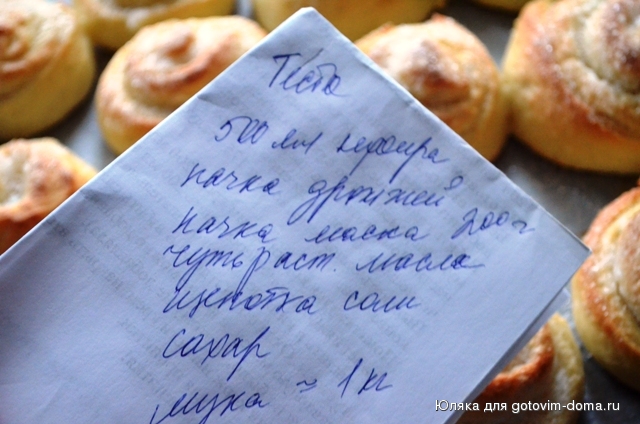 Тесто
500 мл кефира
пачка дрожжей
пачка масла 200г
чуть раст. масла
щепотка соли
сахар
мука ≈ 1 кг
Юляка для gotovim-doma.ru